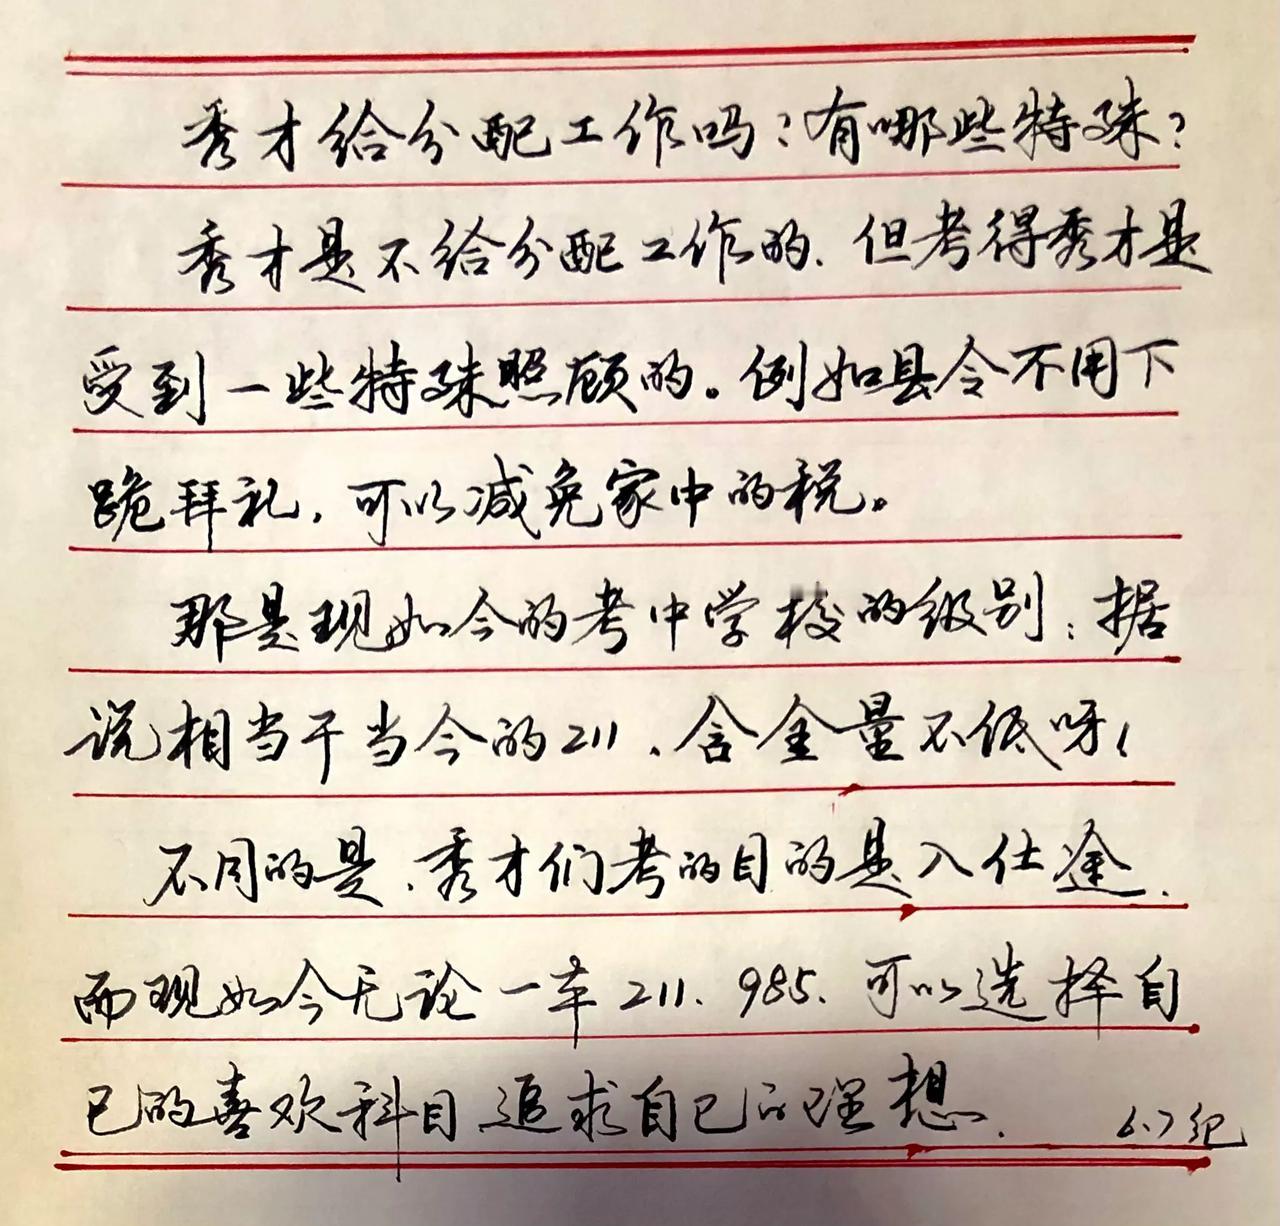 秀才给分配工作吗？有哪些特殊？
秀才是不给分配工作的、但考得秀才是
受到一些特殊照顾的。例如县令不用下
跪拜礼，可以减免家中的税。
那是现如今的考中学校的级别：据
说相当于当今的211、含金量不低呀！
不同的是、秀才们考的目的是入仕途、
而现如今无论一本211、985、可以选择自
已的喜欢科目追求自己的理想、
6.7纪